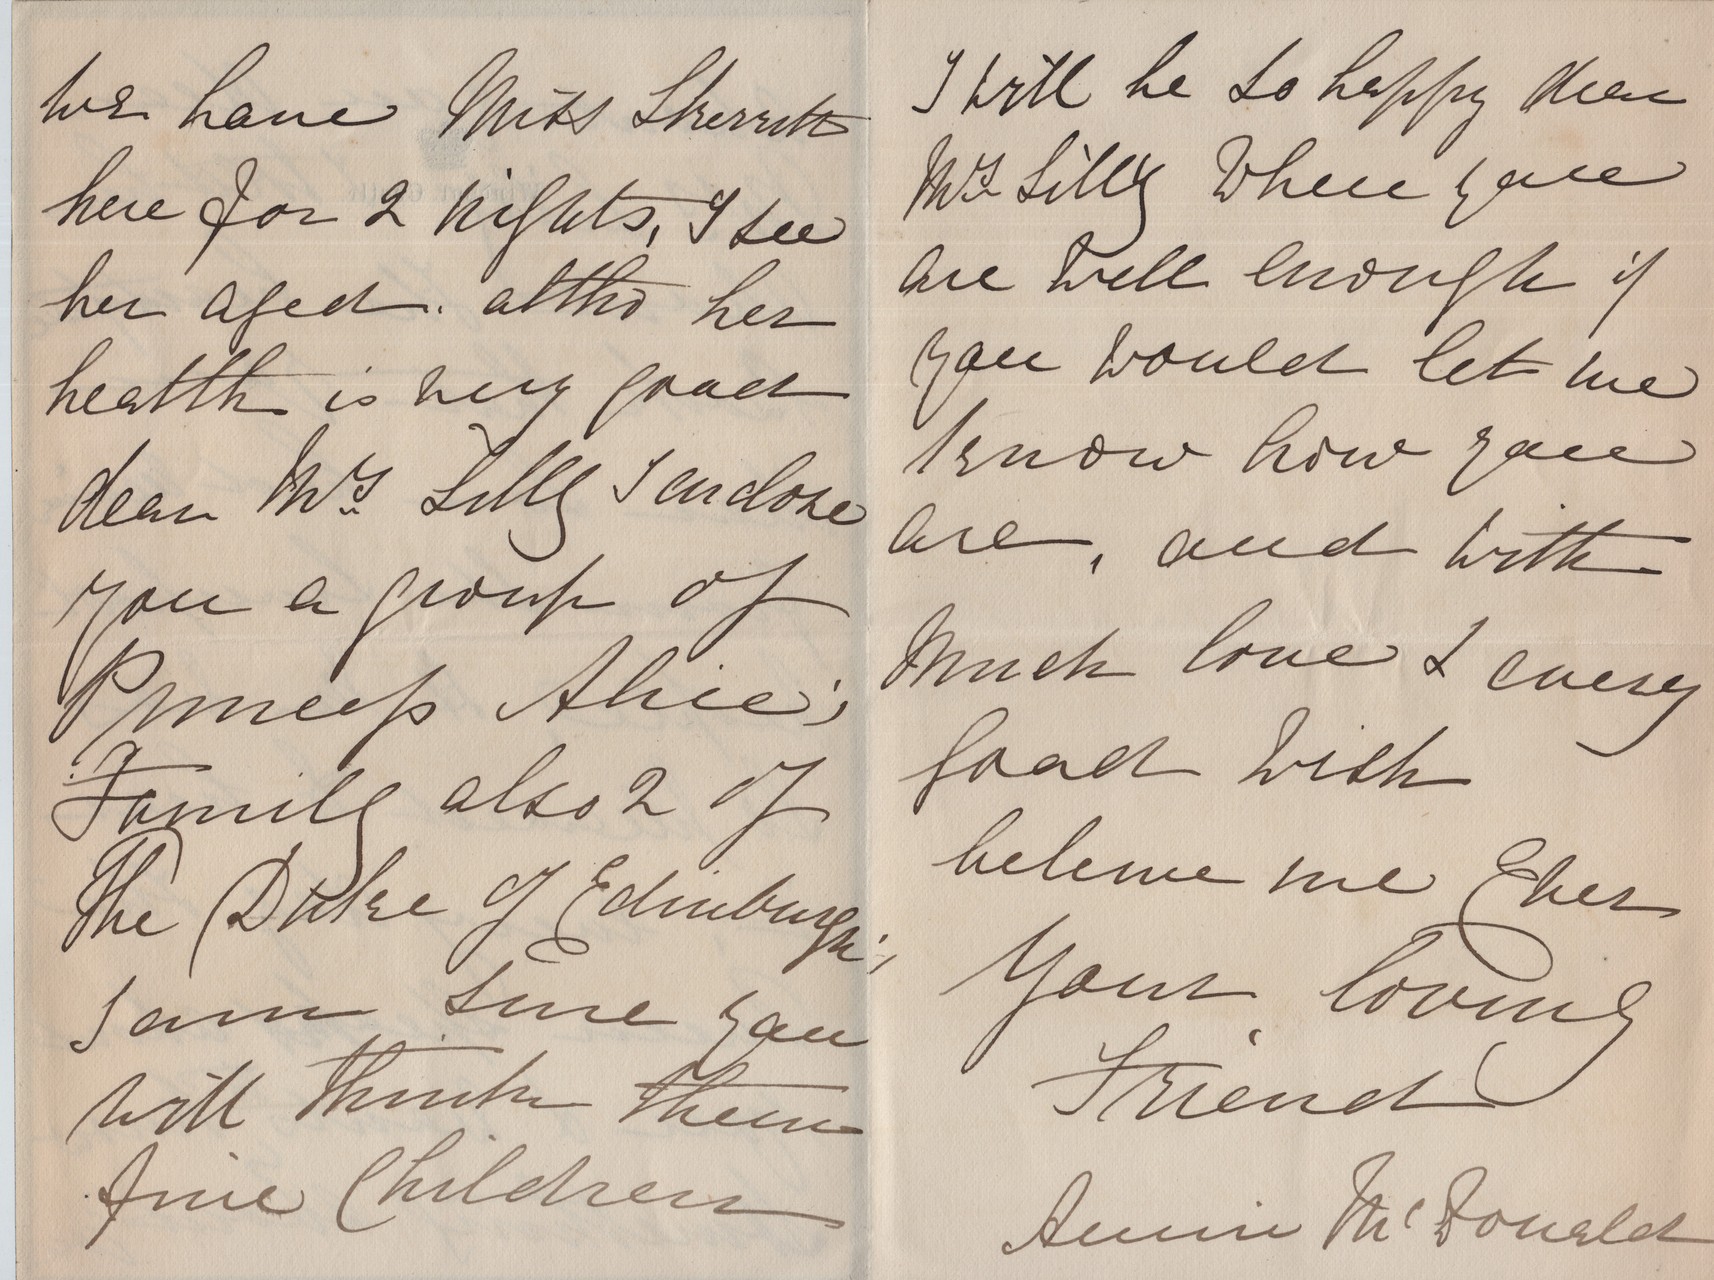 we have Miss Skerrett
here for 2 nights, I see
her aged. altho her
health is very good
dear Mrs Lilly I enclose
you a group of
Princess Alice's
Family also 2 of
The Duke of Edinburgh's,
I am sure you
will think them
fine Children
I will be so happy dear
Mrs Lilly When you
are Well enough if
you would let me
know how you
are, and with
Much love & every
good wish
believe me Ever
Your loving
Friend
Annie McDonald